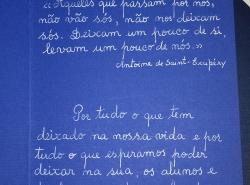 «Aqueles que passam por nós,
não vão sós, não nos deixam
sós. Deixam um pouco de si,
levam um pouco de nós.»
Antoine de Saint-Exupéry
Por tudo o que tem
deixado na nossa vida e por
tudo o que esperamos poder
deixar na sua, os alunos e